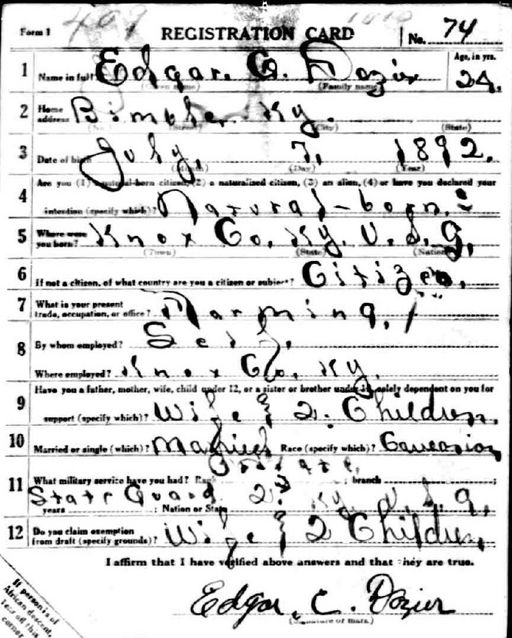 Form 1 REGISTRATION CARD No. 74
1 Name in full Edgar. C. Dozier Age, in yrs. 24.
(Given name) (Family name)
2 Home address Bimble. Ky.
(No.) (Street) (City) (State)
3 Date of birth July, 7, 1892.
(Month) (Day) (Year)
Are you (1) a natural-born citizen, (2) a naturalized citizen, (3) an alien, (4) or have you declared your
4 intention (specify which)? Natural-born.
5 Where were you born? Knox Co. Ky. U.S.a,
(Town) (State) (Nation)
6 If not a citizen, of what country are you a citizen or subject? Citizen.
7 What is your present trade, occupation, or office? Farming,
8 By whom employed? Self,
Where employed? Knox Co, Ky
Have you a father, mother, wife, child under 12, or a sister or brother under 12, solely dependent on you for
9 support (specify which)? Wife & 2. Children.
10 Married or single (which)? Married Race (specify which)? Caucasion
11 What military service have you had? Rank Private, ; branch ;
State Guard 2 Ky, U.S,a,
years ; Nation or State
12 Do you claim exemption from draft (specify grounds)? Wife & 2 Children,
I affirm that I have verified above answers and that they are true.
Edgar. C. Dozier
(Signature or mark)
If person is of
African descent,
tear off this
corner